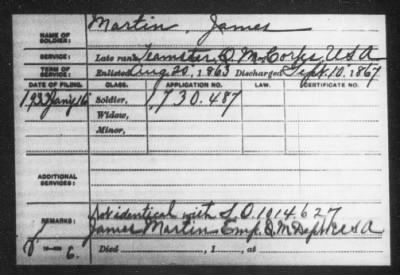 Martin, James
NAME OF SOLDIER:
SERVICE: Late rank Teamster, Q. M. Corps, U S A
TERM OF SERVICE: Enlisted Aug. 20, 1863 Discharged Sept. 10, 1867
DATE OF FILING. CLASS. APPLICATION NO. LAW. CERTIFICATE NO.
1933 Jany 16 Soldier, 1730.487
Widow,
Minor,
ADDITIONAL SERVICES:
REMARKS: Not identical with S. O. 1014627
James Martin Emp. Q. M. Dept. U S A
6. Died , 1 , at